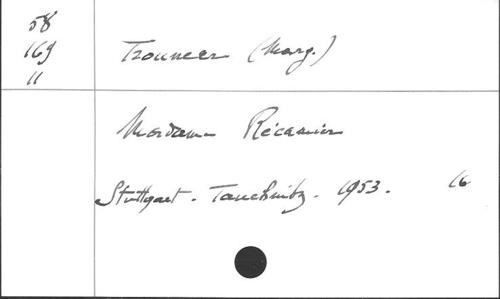 58
169 Trouncer (Marg.)
11
Madame Récamier
Stuttgart. Tauchnitz. 1953. 16